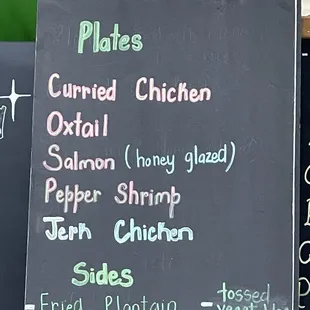 Plates
Curried Chicken
Oxtail
Salmon (honey glazed)
Pepper Shrimp
Jerk Chicken
Sides
- Fried Plantain - tossed